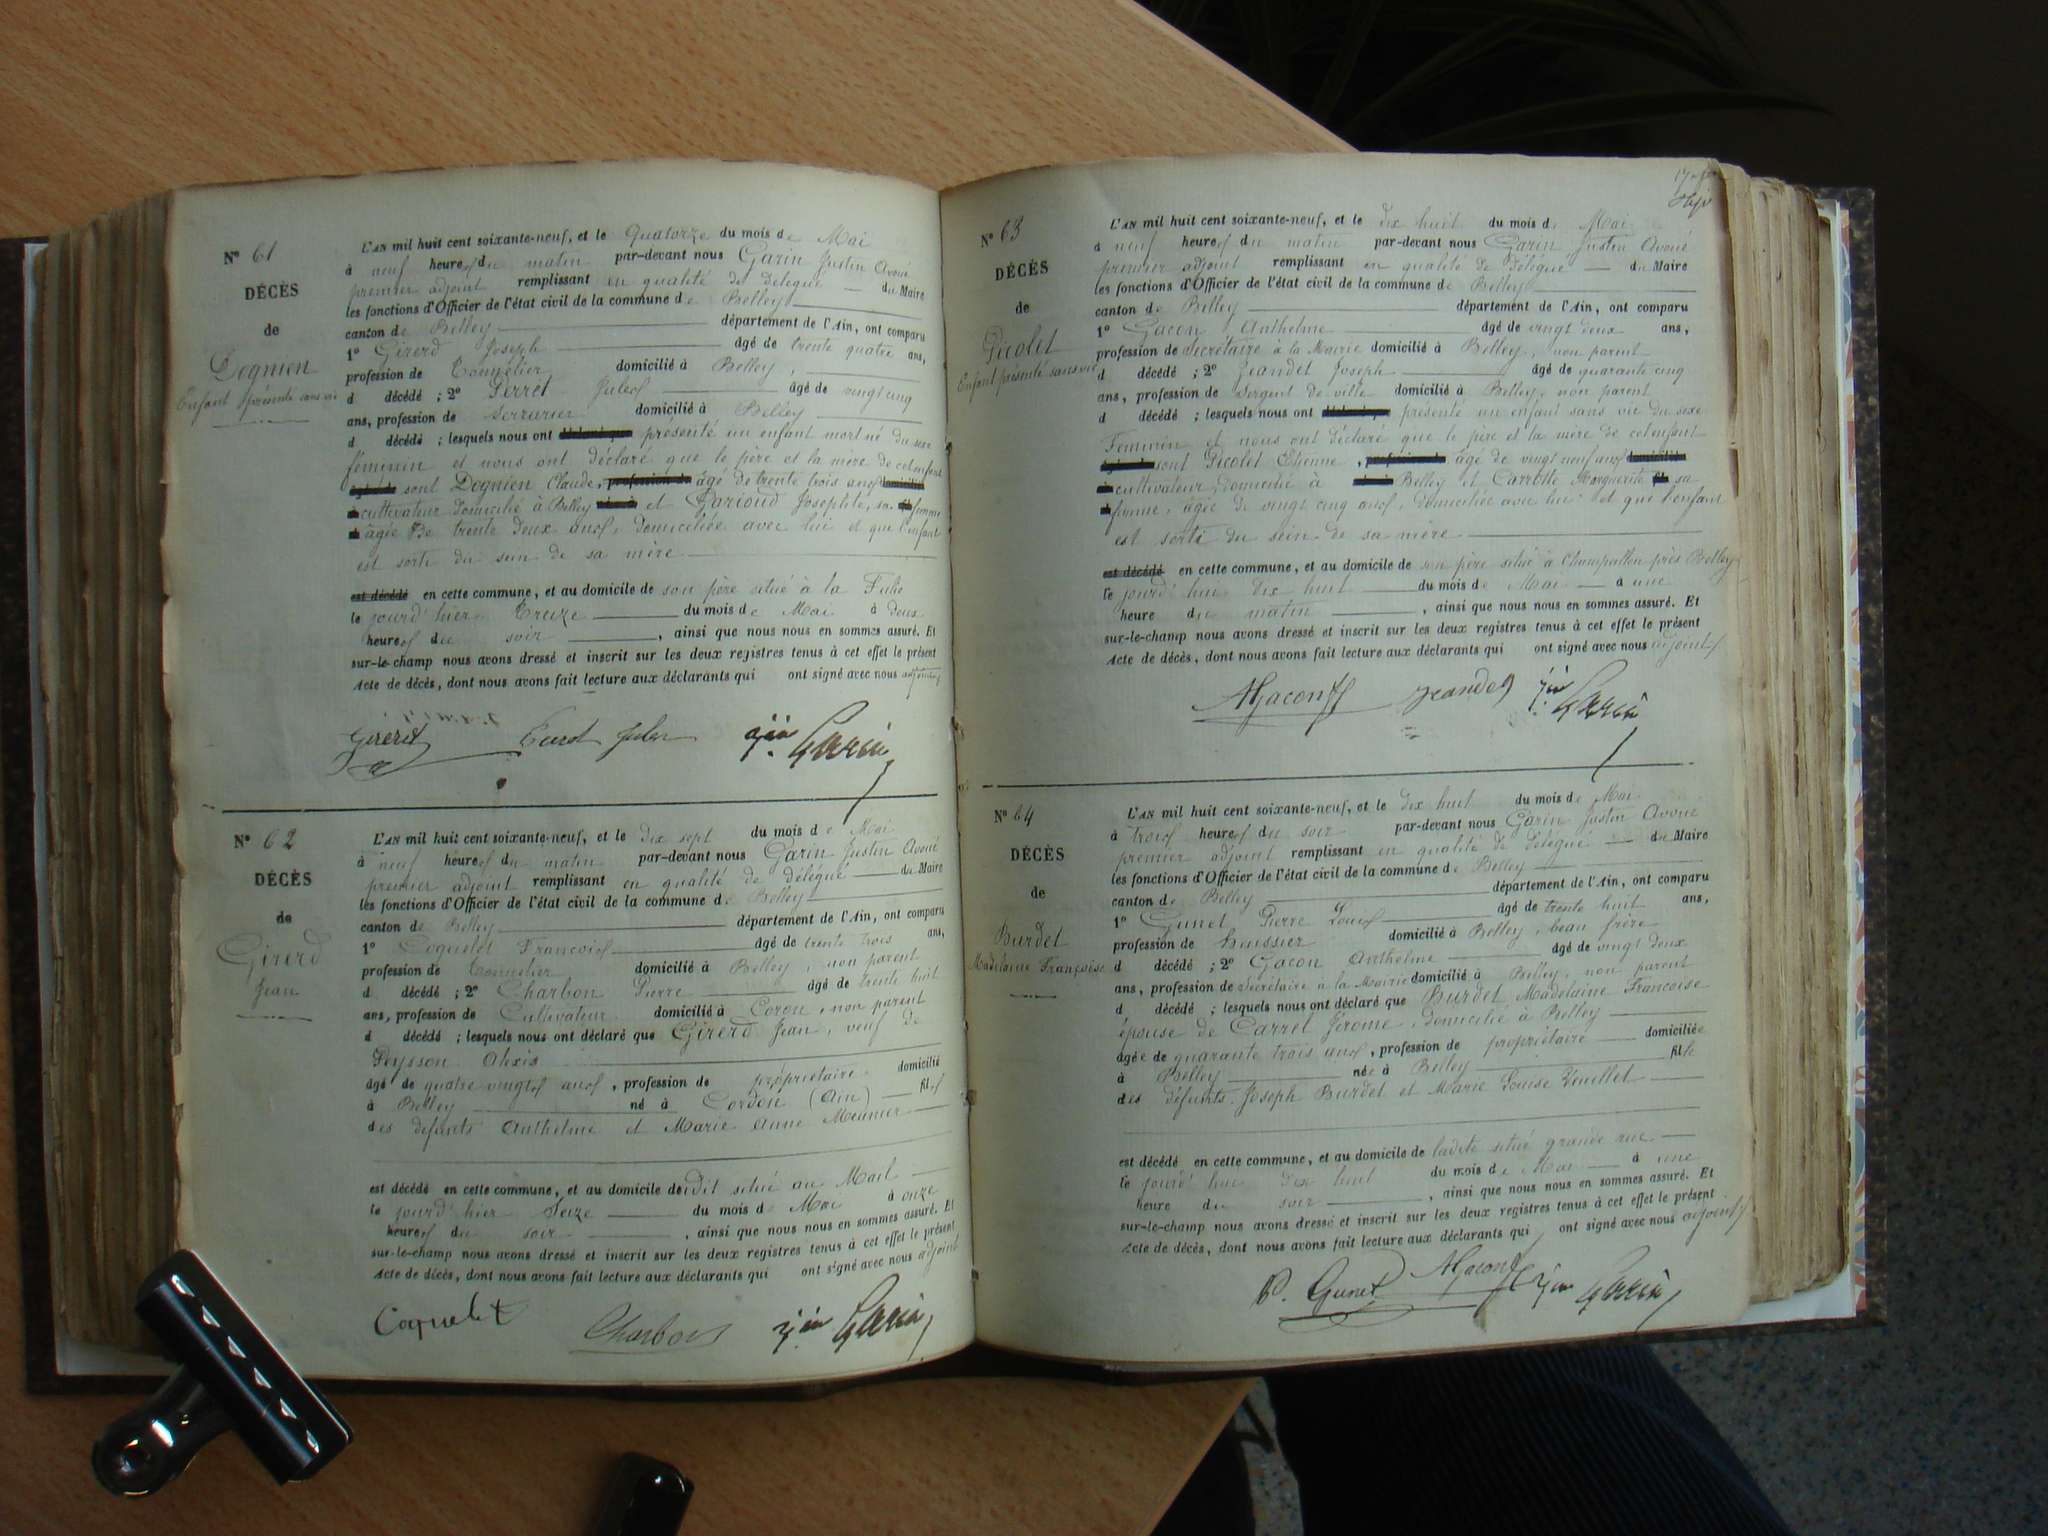 N° 61
DÉCÈS
de
Dognien
Enfant présenté sans vie
L'AN mil huit cent soixante-neuf, et le quatorze du mois de Mai
à neuf heures du matin par-devant nous Garin Justin Avoué
premier adjoint remplissant en qualité de délégué du Maire
les fonctions d'Officier de l'état civil de la commune de Belley
canton de Belley département de l'Ain, ont comparu
1° Girerd Joseph âgé de trente quatre ans,
profession de Tonnelier domicilié à Belley,
d décédé ; 2° Perret Jules âgé de vingt cinq
ans, profession de Serrurier domicilié à Belley
d décédé ; lesquels nous ont présenté un enfant mort né du sexe
féminin et nous ont déclaré que le père et la mère de cet enfant
sont Dognien Claude, âgé de trente trois ans
cultivateur domicilié à Belley et Josephte, sa femme
âgée de trente deux ans, domiciliée avec lui et que l'enfant
est sorti du sein de sa mère
est décédé en cette commune, et au domicile de son père situé à la
le jourd'hier Treize du mois de Mai à deux
heures du soir, ainsi que nous nous en sommes assuré. Et
sur-le-champ nous avons dressé et inscrit sur les deux registres tenus à cet effet le présent
Acte de décès, dont nous avons fait lecture aux déclarants qui ont signé avec nous adjoint
Girerd Perret Jules Jin Garin
N° 62
DÉCÈS
de
Girerd
Jean
L'AN mil huit cent soixante-neuf, et le dix sept du mois de Mai
à neuf heures du matin par-devant nous Garin Justin Avoué
premier adjoint remplissant en qualité de délégué du Maire
les fonctions d'Officier de l'état civil de la commune de Belley
canton de Belley département de l'Ain, ont comparu
1° Coquelet François âgé de trente trois ans,
profession de Tonnelier domicilié à Belley, non parent
d décédé ; 2° Charbon Pierre âgé de trente huit
ans, profession de Cultivateur domicilié à Coron, non parent
d décédé ; lesquels nous ont déclaré que Girerd Jean, veuf de
Peysson Alexis
âgé de quatre vingts ans, profession de propriétaire domicilié
à Belley né à Cordon (Ain) fils
des défunts Anthelme et Marie Anne Meunier
est décédé en cette commune, et au domicile dudit situé au Mail
le jourd'hier Seize du mois de Mai à onze
heures du soir, ainsi que nous nous en sommes assuré. Et
sur-le-champ nous avons dressé et inscrit sur les deux registres tenus à cet effet le présent
Acte de décès, dont nous avons fait lecture aux déclarants qui ont signé avec nous adjoint
Coquelet Charbon Jin Garin
N° 63
DÉCÈS
de
Picolet
Enfant présenté sans vie
L'AN mil huit cent soixante-neuf, et le dix huit du mois de Mai
à neuf heures du matin par-devant nous Garin Justin Avoué
premier adjoint remplissant en qualité de délégué du Maire
les fonctions d'Officier de l'état civil de la commune de Belley
canton de Belley département de l'Ain, ont comparu
1° Gacon Anthelme âgé de vingt deux ans,
profession de Secrétaire à la Mairie domicilié à Belley, non parent
d décédé ; 2° Jeandet Joseph âgé de quarante cinq
ans, profession de Sergent de ville domicilié à Belley, non parent
d décédé ; lesquels nous ont présenté un enfant sans vie du sexe
Féminin et nous ont déclaré que le père et la mère de cet enfant
sont Picolet Etienne, âgé de vingt neuf ans
cultivateur, domicilié à Belley et Carrotte Marguerite sa
femme, âgée de vingt cinq ans, domiciliée avec lui et que l'enfant
est sorti du sein de sa mère
est décédé en cette commune, et au domicile de son père situé à Champaillon près Belley
le jourd'hui dix huit du mois de Mai à une
heure du matin, ainsi que nous nous en sommes assuré. Et
sur-le-champ nous avons dressé et inscrit sur les deux registres tenus à cet effet le présent
Acte de décès, dont nous avons fait lecture aux déclarants qui ont signé avec nous adjoint
AGacon Jeandet Jin Garin
N° 64
DÉCÈS
de
Burdet
Madelaine Françoise
L'AN mil huit cent soixante-neuf, et le dix huit du mois de Mai
à trois heures du soir par-devant nous Garin Justin Avoué
premier adjoint remplissant en qualité de délégué du Maire
les fonctions d'Officier de l'état civil de la commune de Belley
canton de Belley département de l'Ain, ont comparu
1° Gunet Pierre Louis âgé de trente huit ans,
profession de huissier domicilié à Belley, beau frère
d décédé ; 2° Gacon Anthelme âgé de vingt deux
ans, profession de Secrétaire à la Mairie domicilié à Belley, non parent
d décédé ; lesquels nous ont déclaré que Burdet Madelaine Françoise
épouse de Carrel Jérome, domicilié à Belley
âgée de quarante trois ans, profession de propriétaire domiciliée
à Belley née à Belley fille
des défunts Joseph Burdet et Marie Louise
est décédé en cette commune, et au domicile de ladite situé grande rue
le jourd'hui dix huit du mois de Mai à une
heure du soir, ainsi que nous nous en sommes assuré. Et
sur-le-champ nous avons dressé et inscrit sur les deux registres tenus à cet effet le présent
Acte de décès, dont nous avons fait lecture aux déclarants qui ont signé avec nous adjoint
P. Gunet AGacon Jin Garin